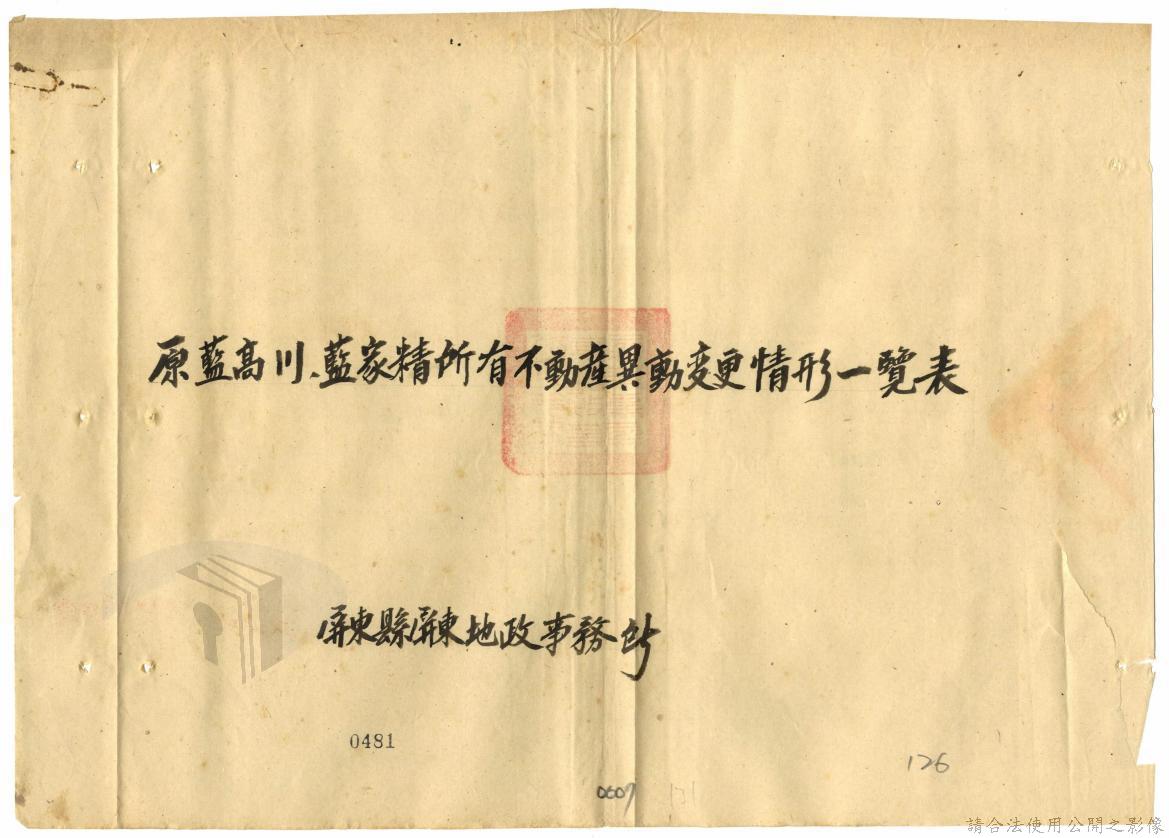 原藍高川、藍家精所有不動產異動変更情形一覽表
屏東縣屏東地政事務所
0481
126
0607
131
請合法使用公開之影像